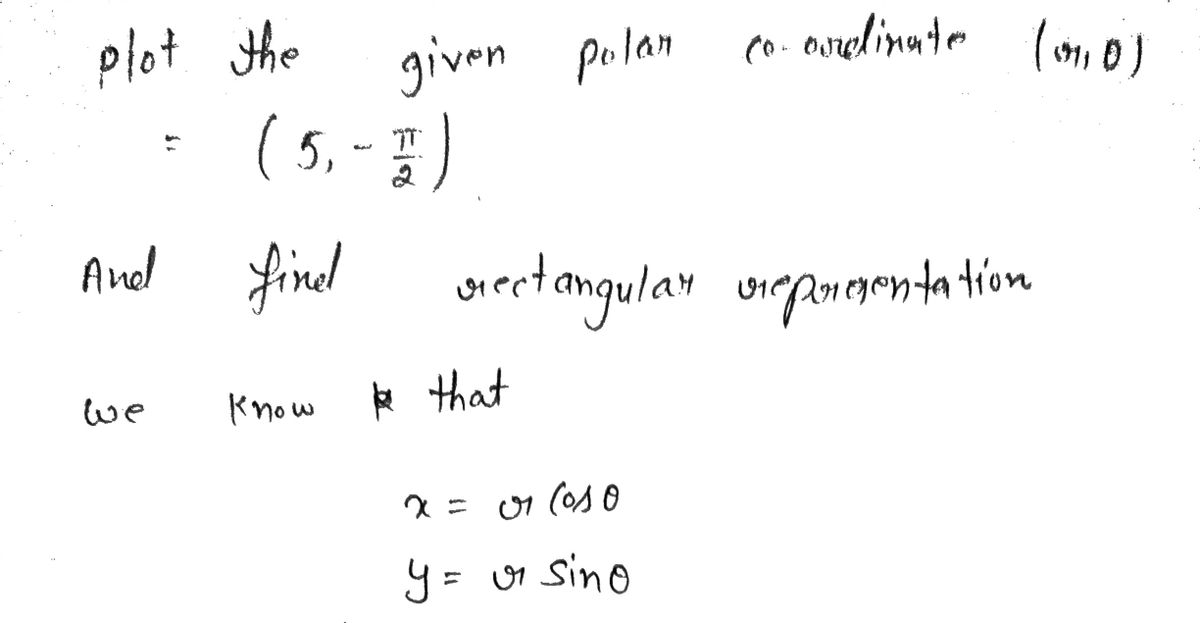 plot the given polar co-ordinate (r, θ)
= (5, -π/2)
And find rectangular representation
we know that
x = r cos θ
y = r sin θ